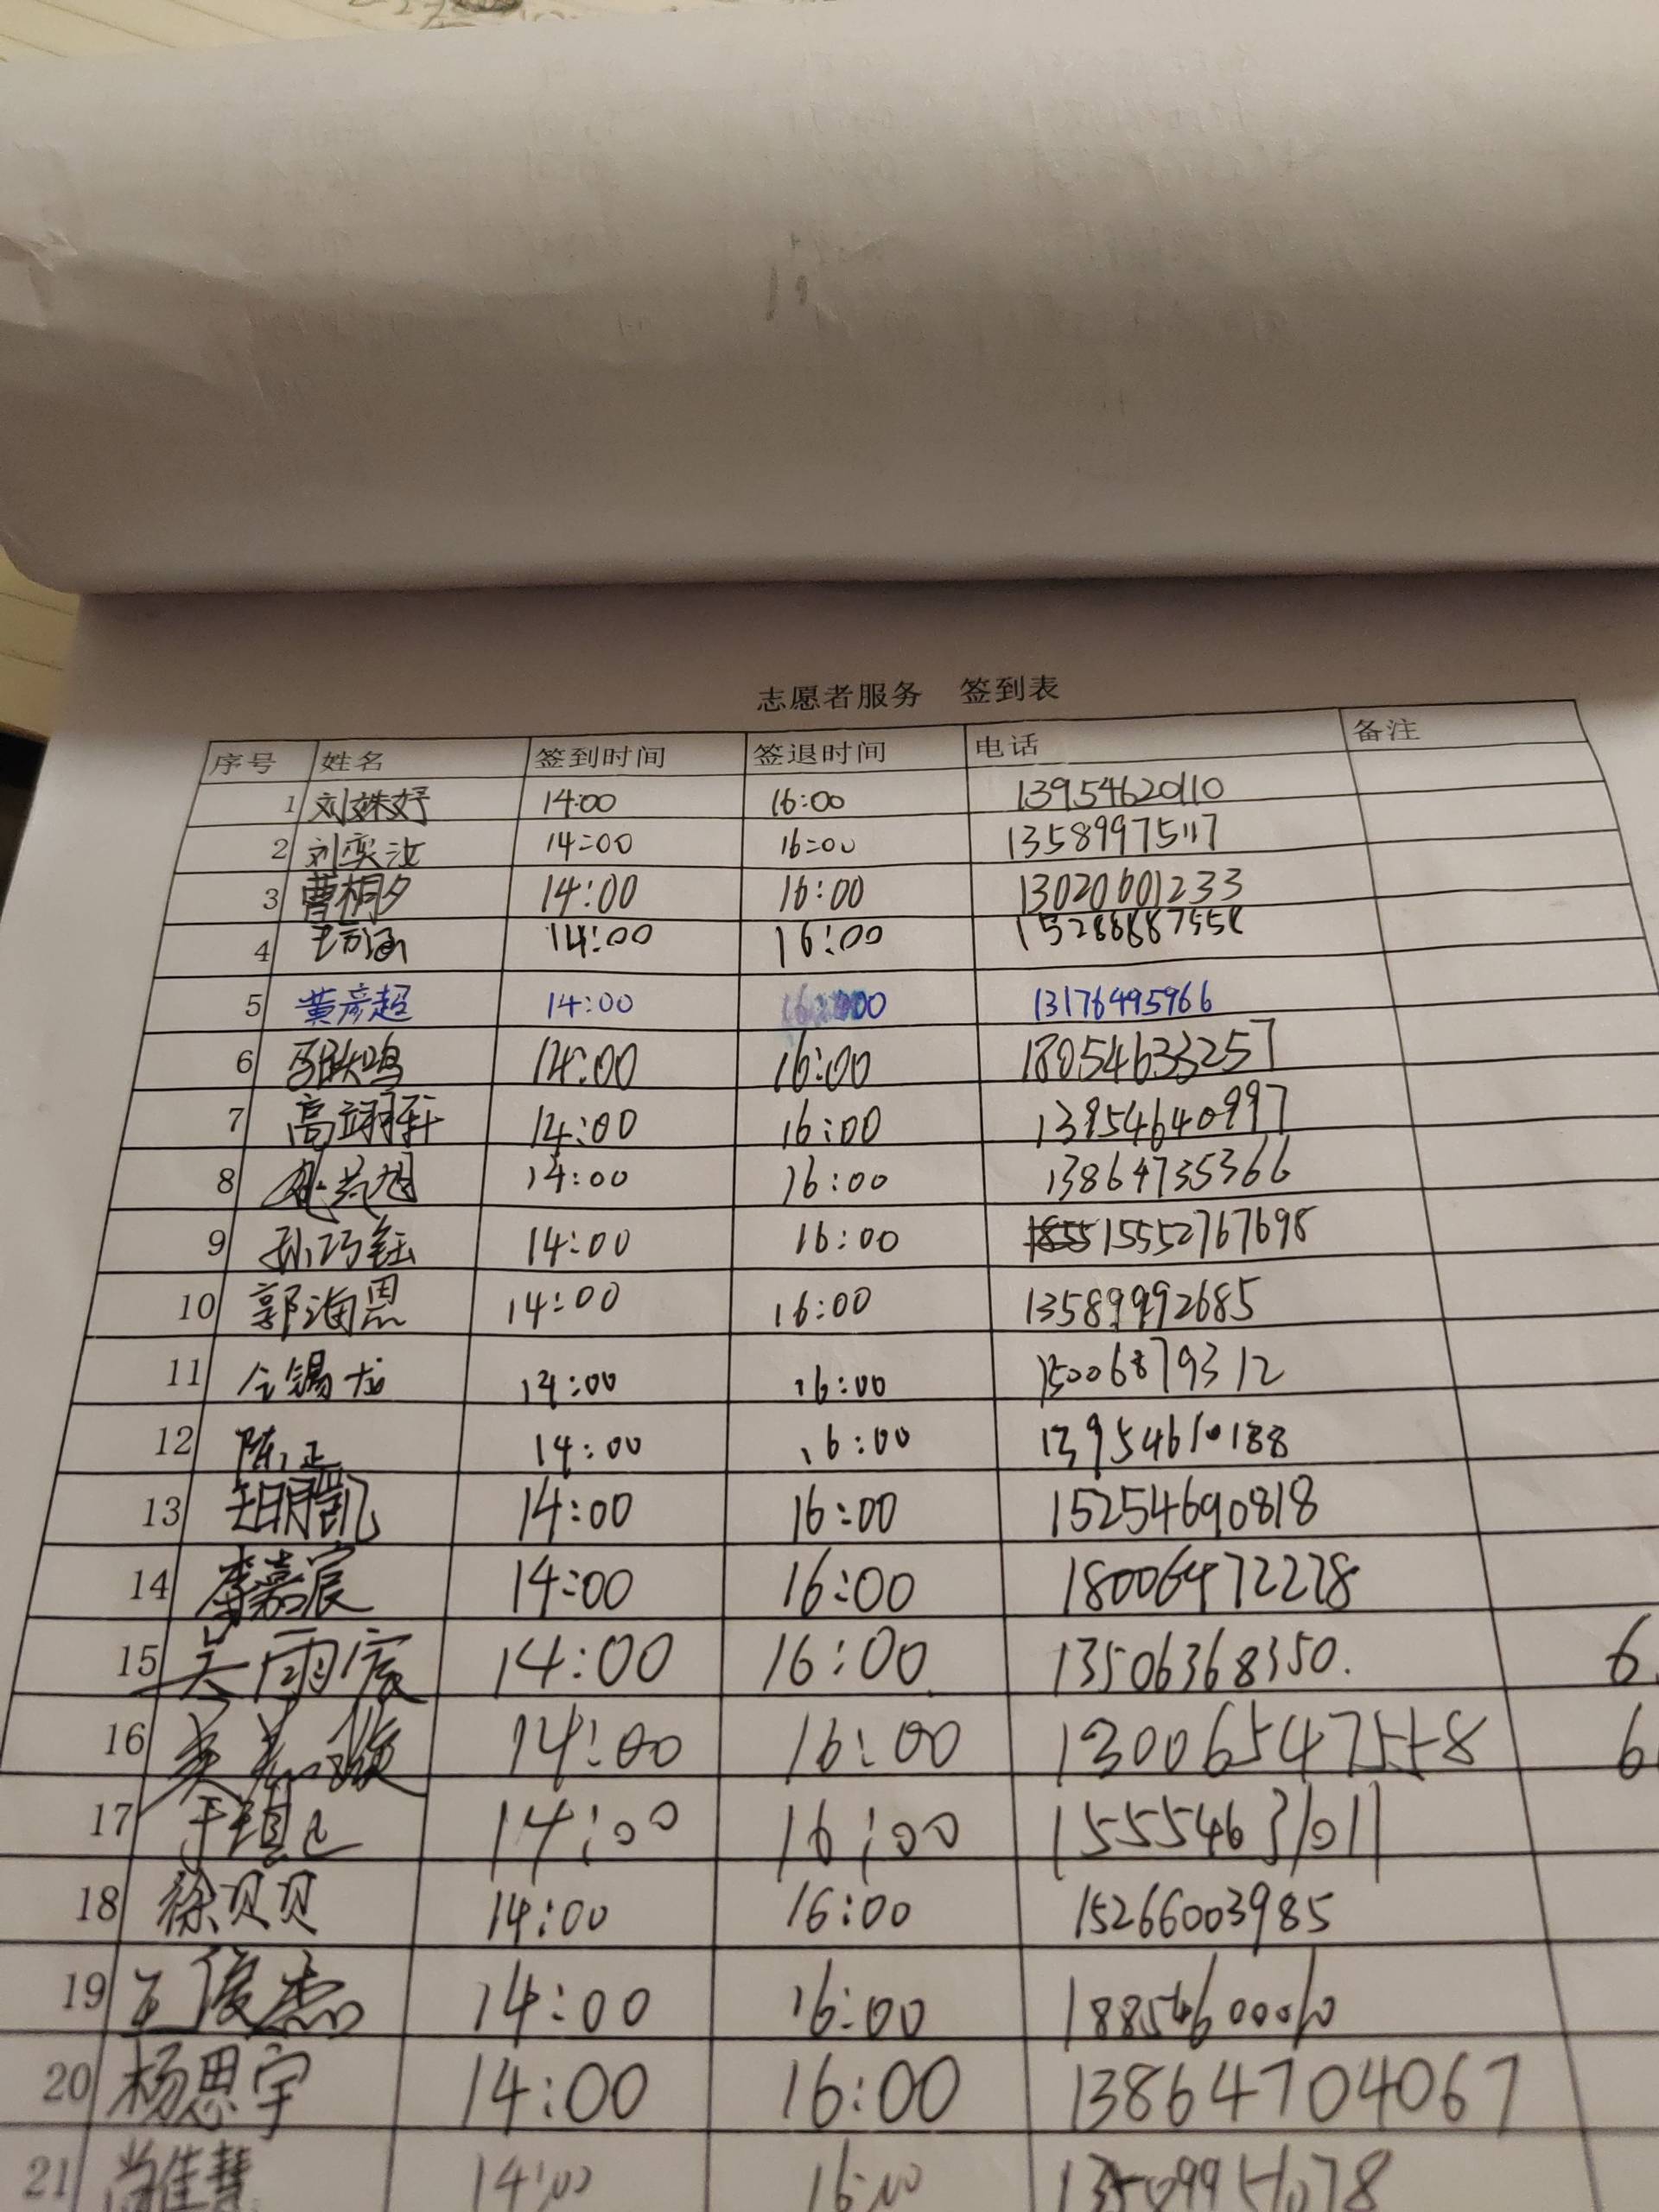 志愿者服务 签到表
序号 姓名 签到时间 签退时间 电话 备注
1 刘姝妤 14:00 16:00 13954620110
2 刘奕汝 14:00 16:00 13589975117
3 曹桐夕 14:00 16:00 13020601233
4 14:00 16:00
5 黄彦超 14:00 16:00 13176495966
6 14:00 16:00 18054633257
7 高翊轩 14:00 16:00 13954640997
8 14:00 16:00 13864735366
9 孙巧钰 14:00 16:00 15552767698
10 郭海恩 14:00 16:00 13589992685
11 仝锡龙 14:00 16:00 15006879312
12 陈正 14:00 16:00 13954610188
13 14:00 16:00 15254690818
14 李嘉宸 14:00 16:00 18006472278
15 吴雨宸 14:00 16:00 13506368350.
16 14:00 16:00 13006547558
17 14:00 16:00 15554631011
18 徐贝贝 14:00 16:00 15266003985
19 王俊杰 14:00 16:00 18854600010
20 杨思宇 14:00 16:00 13864704067
21 尚佳慧 14:00 16:00